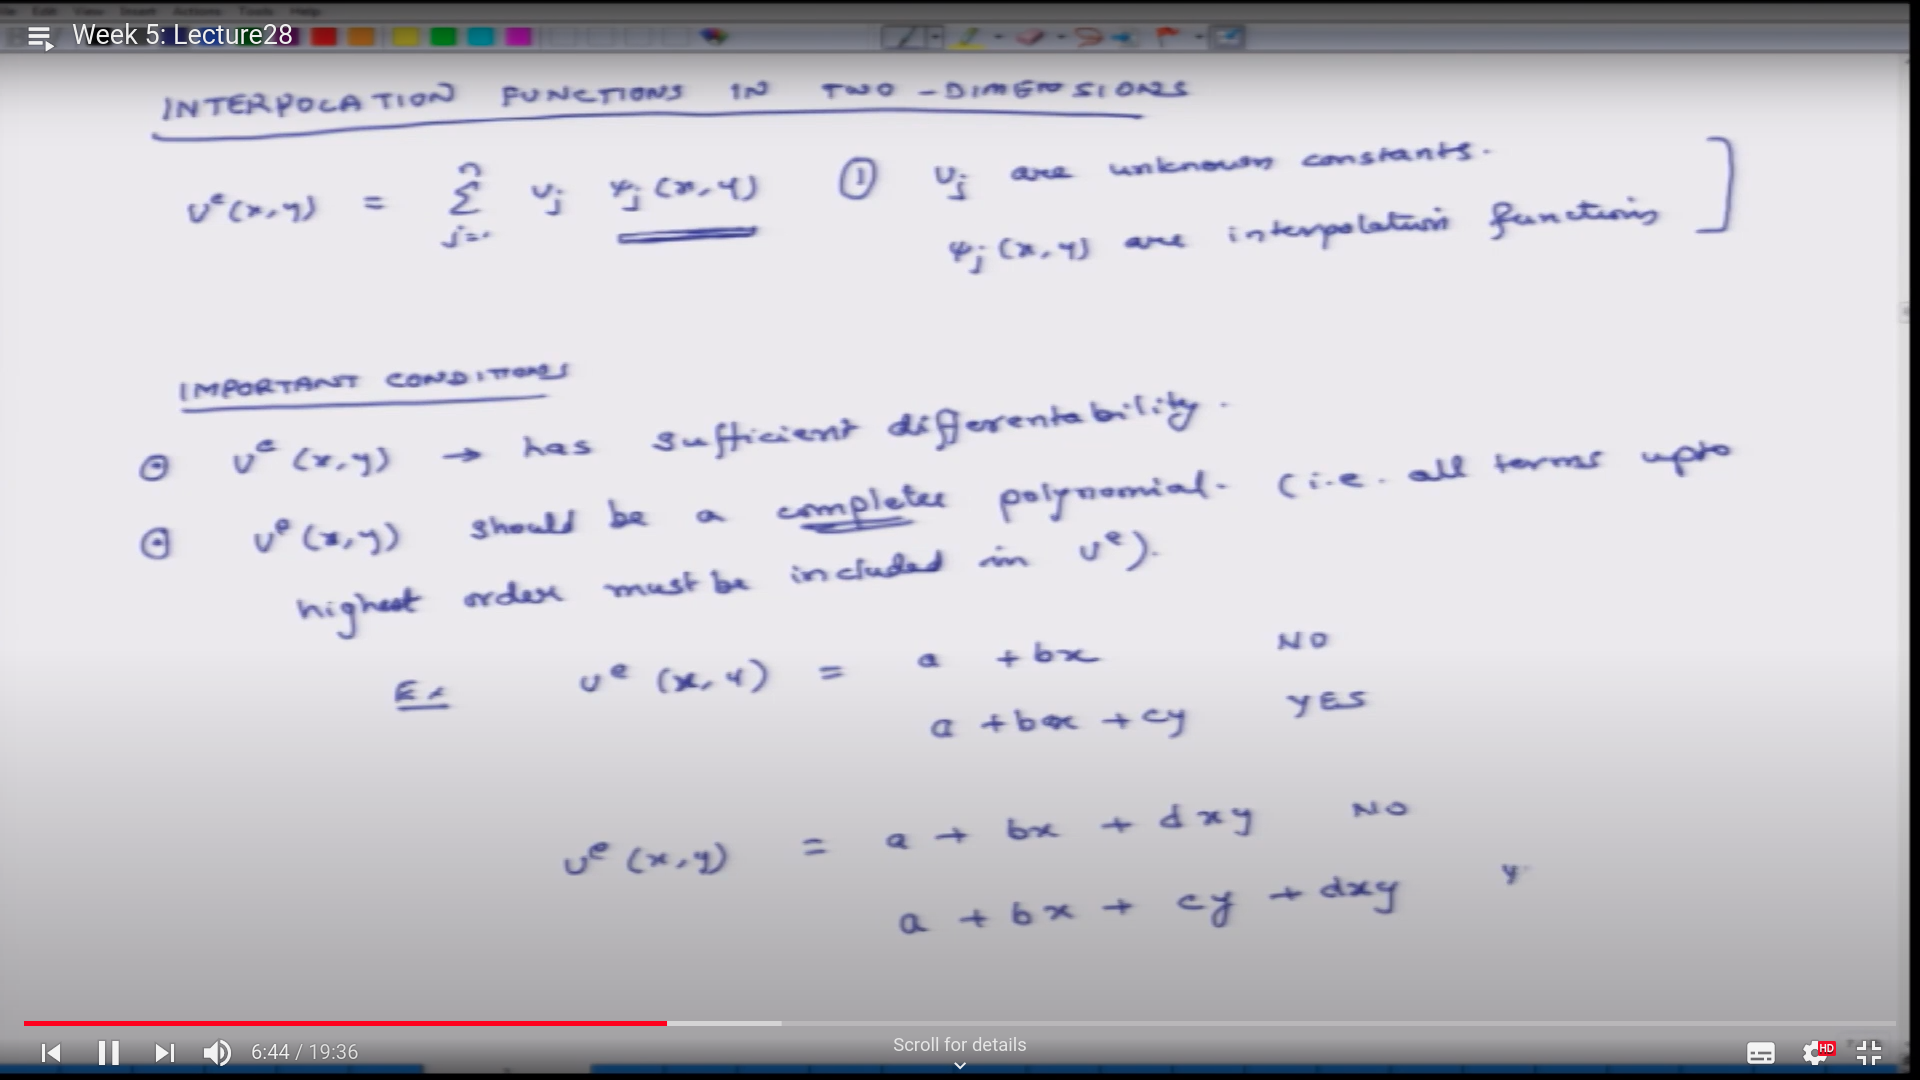 File Edit View Insert Actions Tools Help
Week 5: Lecture28
INTERPOLATION FUNCTIONS IN TWO-DIMENSIONS
u^e(x,y) = Σ_{j=1}^{n} u_j ψ_j(x,y) ① u_j are unknown constants.
ψ_j(x,y) are interpolation functions
IMPORTANT CONDITIONS
⊙ u^e(x,y) → has sufficient differentability.
⊙ u^e(x,y) should be a complete polynomial. (i.e. all terms upto
highest order must be included in u^e).
Ex u^e(x,y) = a + bx NO
a + bx + cy YES
u^e(x,y) = a + bx + dxy NO
a + bx + cy + dxy Y
6:44 / 19:36
Scroll for details
HD